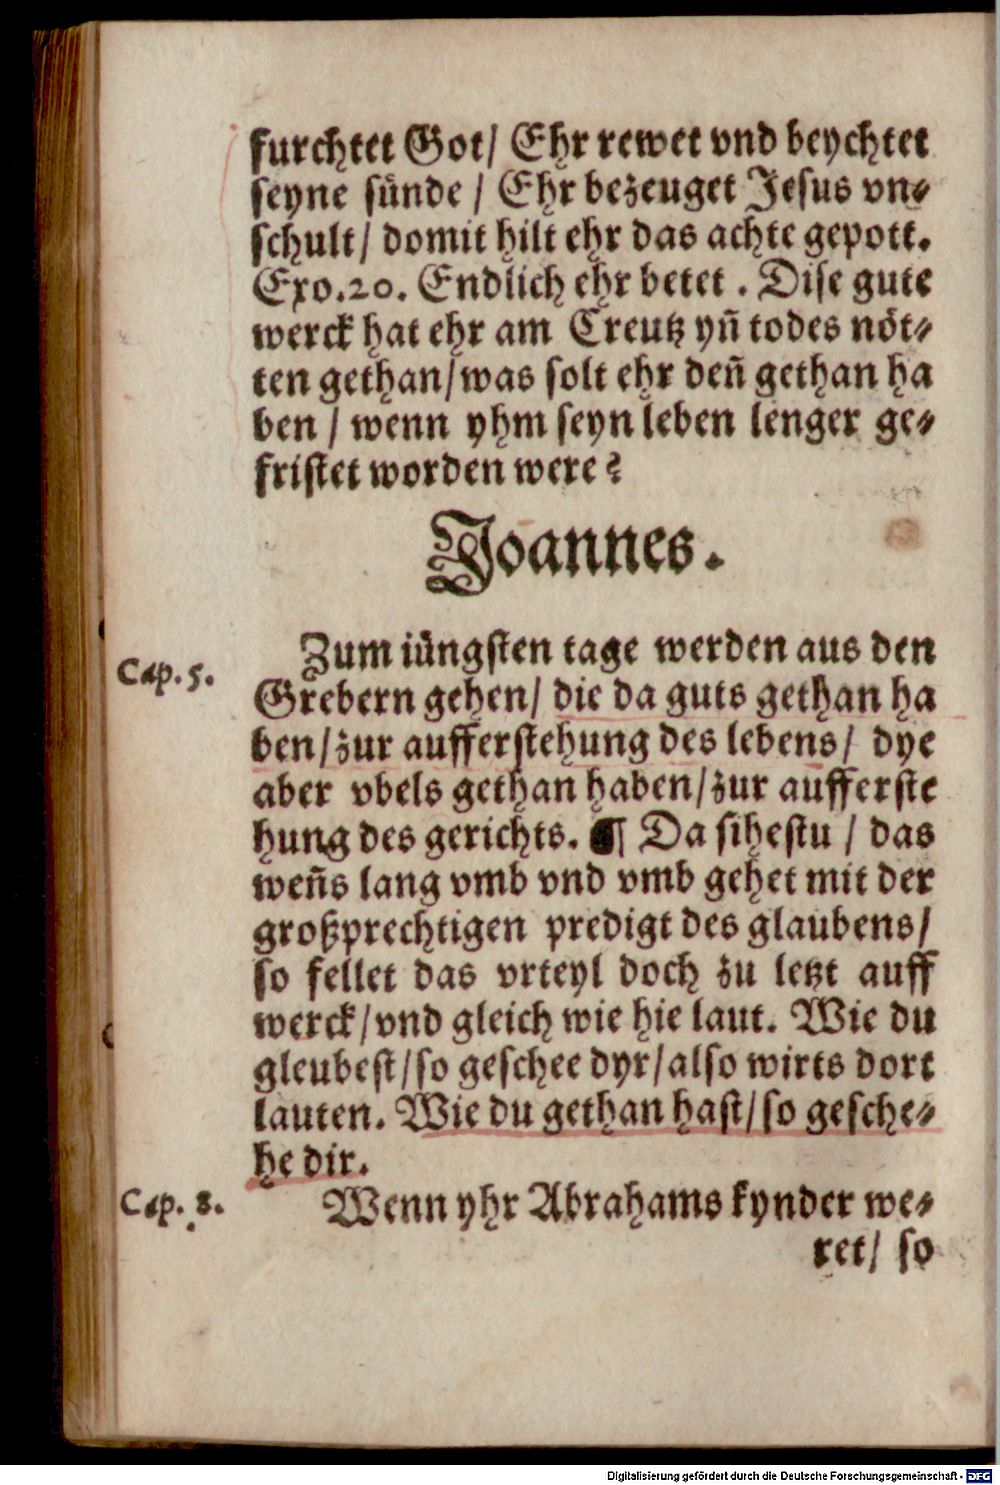 furchtet Got/ Ehr rewet vnd beychtet
seyne sünde / Ehr bezeuget Jesus vn⸗
schult/ domit hilt ehr das achte gepott.
Exo.20. Endlich ehr betet . Dise gute
werck hat ehr am Creutz yñ todes nöt⸗
ten gethan/was solt ehr deñ gethan ha
ben / wenn yhm seyn leben lenger ge⸗
fristet worden were?
Joannes.
Cap. 5.
Zum iüngsten tage werden aus den
Grebern gehen/ die da guts gethan ha
ben/zur aufferstehung des lebens/ dye
aber vbels gethan haben/zur aufferste
hung des gerichts. ¶ Da sihestu / das
weñs lang vmb vnd vmb gehet mit der
großprechtigen predigt des glaubens/
so fellet das vrteyl doch zu letzt auff
werck/vnd gleich wie hie laut. Wie du
gleubest/so geschee dyr/also wirts dort
lauten. Wie du gethan hast/so gesche⸗
he dir.
Cap. 8.
Wenn yhr Abrahams kynder we⸗
ret/ so
Digitalisierung gefördert durch die Deutsche Forschungsgemeinschaft - DFG